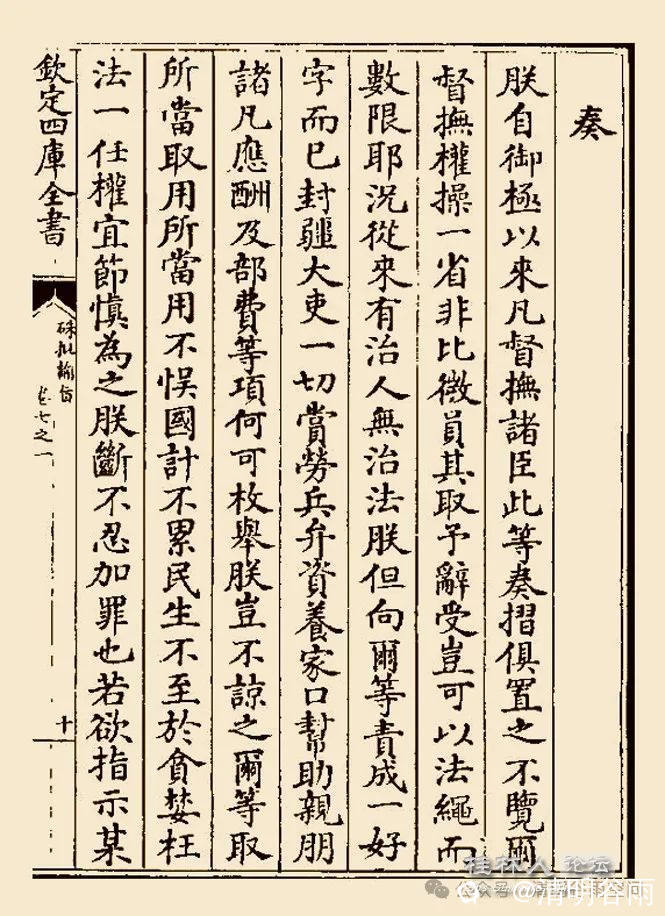 奏
朕自御極以來凡督撫諸臣此等奏摺俱置之不覽爾
督撫權操一省非比微員其取予辭受豈可以法繩而
數限耶況從來有治人無治法朕但向爾等責成一好
字而已封疆大吏一切賞勞兵弁資養家口幫助親朋
諸凡應酬及部費等項何可枚舉朕豈不諒之爾等取
所當取用所當用不悞國計不累民生不至於貪婪枉
法一任權宜節慎為之朕斷不忍加罪也若欲指示某
欽定四庫全書
硃批諭旨
卷七之一
十
桂林人论坛
公众号
清明谷雨